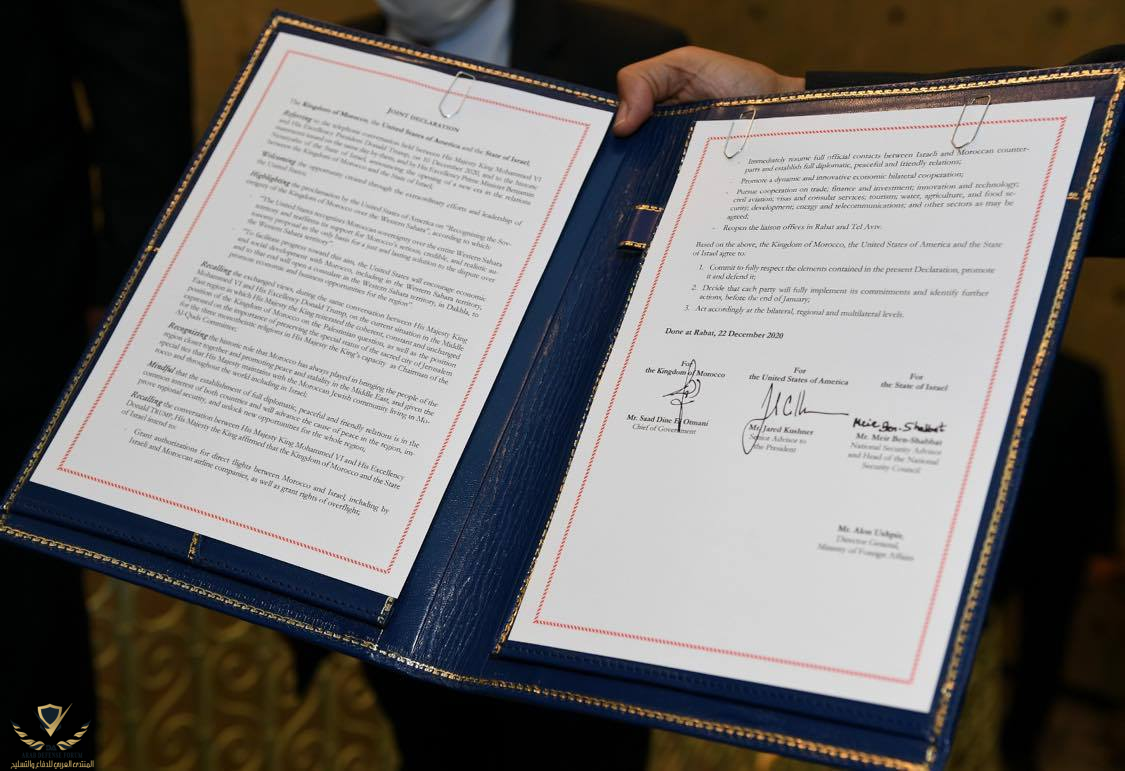 JOINT DECLARATION
The Kingdom of Morocco, the United States of America and the State of Israel,
Referring to the telephone conversation held between His Majesty King Mohammed VI
and His Excellency President Donald Trump, on 10 December 2020, and to the historic
statements issued on the same day by them, and by His Excellency Prime Minister Benjamin
Netanyahu of the State of Israel, announcing the opening of a new era in the relations
between the Kingdom of Morocco and the State of Israel,
Welcoming the opportunity created through the extraordinary efforts and leadership of
the United States;
Highlighting the proclamation by the United States of America on "Recognizing the Sov-
ereignty of the Kingdom of Morocco over the Western Sahara", according to which
- "The United States recognizes Moroccan sovereignty over the entire Western Sahara
territory and reaffirms its support for Morocco's serious, credible, and realistic au-
tonomy proposal as the only basis for a just and lasting solution to the dispute over
the Western Sahara territory"
- "To facilitate progress toward this aim, the United States will encourage economic
and social development with Morocco, including in the Western Sahara territory,
and to that end will open a consulate in the Western Sahara territory, in Dakhla, to
promote economic and business opportunities for the region"
Recalling the exchanged views, during the same conversation between His Majesty King
Mohammed VI and His Excellency Donald Trump, on the current situation in the Middle
East region in which His Majesty the King reiterated the coherent, constant and unchanged
position of the Kingdom of Morocco on the Palestinian question, as well as the position
expressed on the importance of preserving the special status of the sacred city of Jerusalem
for the three monotheistic religions in His Majesty the King's capacity as Chairman of the
Al-Quds Committee;
Recognizing the historic role that Morocco has always played in bringing the people of the
region closer together and promoting peace and stability in the Middle East, and given the
special ties that His Majesty maintains with the Moroccan Jewish community living in Mo-
rocco and throughout the world including in Israel;
Mindful that the establishment of full diplomatic, peaceful and friendly relations is in the
common interest of both countries and will advance the cause of peace in the region, im-
prove regional security, and unlock new opportunities for the whole region;
Recalling the conversation between His Majesty King Mohammed VI and His Excellency
Donald TRUMP, His Majesty the King affirmed that the Kingdom of Morocco and the State
of Israel intend to:
- Grant authorizations for direct flights between Morocco and Israel, including by
Israeli and Moroccan airline companies, as well as grant rights of overflight;
- Immediately resume full official contacts between Israeli and Moroccan counter-
parts and establish full diplomatic, peaceful and friendly relations;
- Promote a dynamic and innovative economic bilateral cooperation;
- Pursue cooperation on trade; finance and investment; innovation and technology;
civil aviation; visas and consular services; tourism; water, agriculture, and food se-
curity; development; energy and telecommunications; and other sectors as may be
agreed;
- Reopen the liaison offices in Rabat and Tel Aviv.
Based on the above, the Kingdom of Morocco, the United States of America and the State
of Israel agree to:
1. Commit to fully respect the elements contained in the present Declaration, promote
it and defend it;
2. Decide that each party will fully implement its commitments and identify further
actions, before the end of January;
3. Act accordingly at the bilateral, regional and multilateral levels.
Done at Rabat, 22 December 2020
For
the Kingdom of Morocco
Mr. Saad Dine El Otmani
Chief of Government
For
the United States of America
Mr. Jared Kushner
Senior Advisor to
the President
For
the State of Israel
Meir Ben-Shabbat
Mr. Meir Ben-Shabbat
National Security Advisor
and Head of the National
Security Council
Mr. Alon Ushpiz,
Director General,
Ministry of Foreign Affairs
ARAB DEFENSE FORUM
المنتدى العربي للدفاع والتسليح